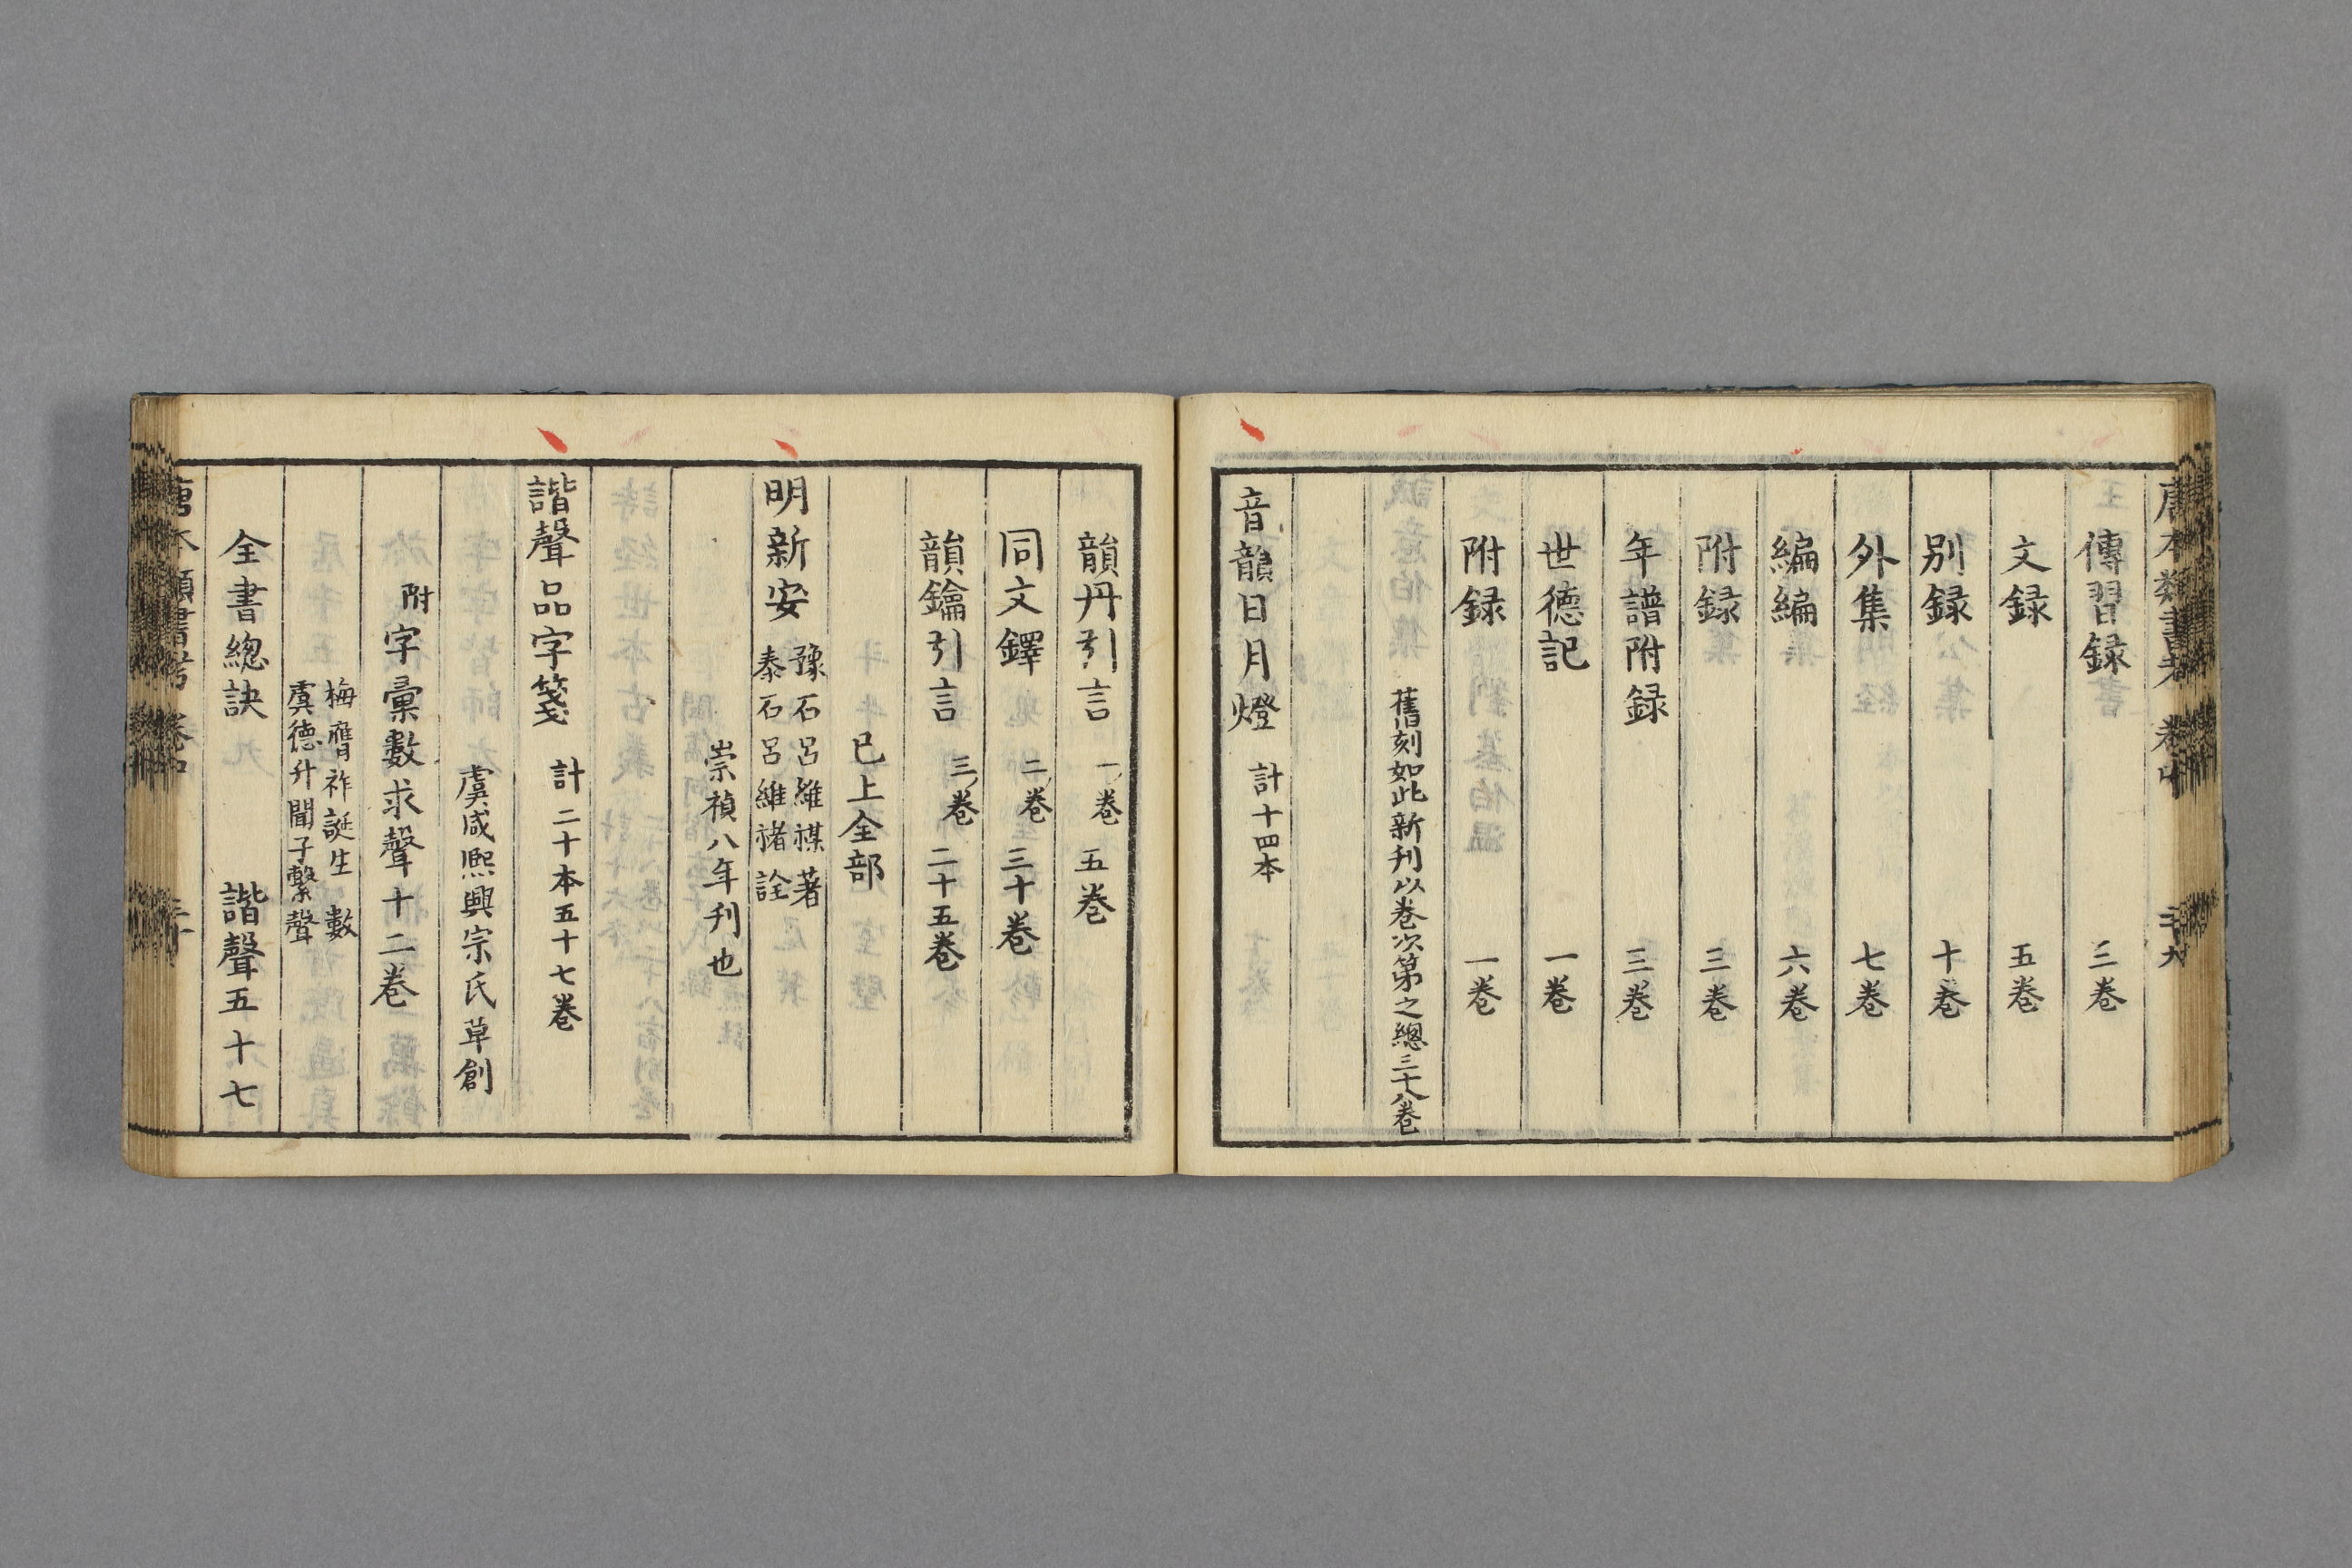 唐本類書考 卷中 三十九
傳習録 三卷
文録 五卷
別録 十卷
外集 七卷
編編 六卷
附録 三卷
年譜附録 三卷
世德記 一卷
附録 一卷
舊刻如此新刊以卷次第之總三十八卷
音韻日月燈 計十四本
韻丹引言 一卷 五卷
同文鐸 二卷 三十卷
韻鑰引言 三卷 二十五卷
已上全部
明新安 豫石呂維祺著
泰石呂維禇詮
崇禎八年刊也
諧聲品字箋 計二十本五十七卷
虞咸熙興宗氏草創
附字彙數求聲十二卷
梅膺祚誕生 數
虞德升聞子繫聲
全書總訣 諧聲五十七
唐本類書考 卷中